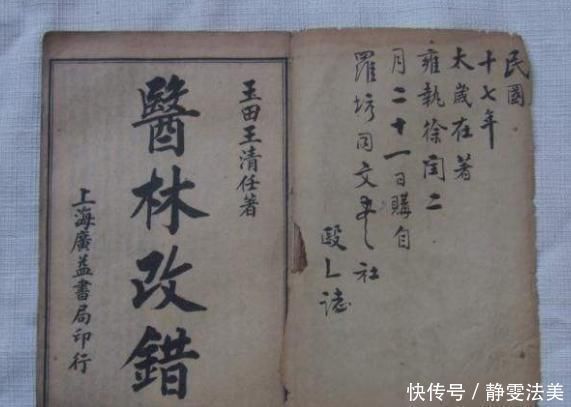 民国
十七年
太歲在著
雍執徐閏二
月二十一日購自
羅坊同文社
誌
玉田王清任著
醫林改錯
上海廣益書局印行
快传号 / 静雯法美